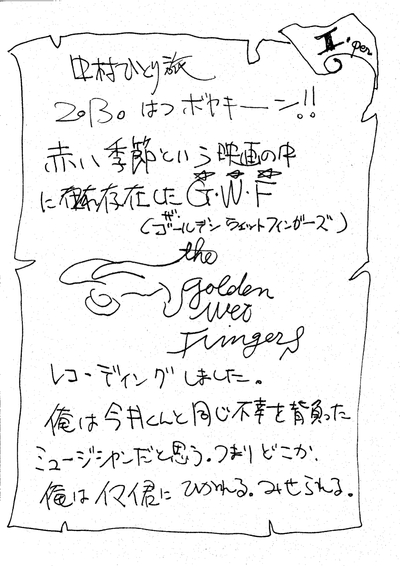 II.pen
中村ひとり旅
2.B.はつボヤキーン!!
赤い季節という映画の中
に存在したG.W.F
(ザゴールデンウェットフィンガーズ)
the
golden
wet
Fingers
レコーディングしました。
俺は今井くんと同じ不幸を背負った
ミュージシャンだと思う。つまりどこか、
俺はイマイ君にひかれる。みせられる。